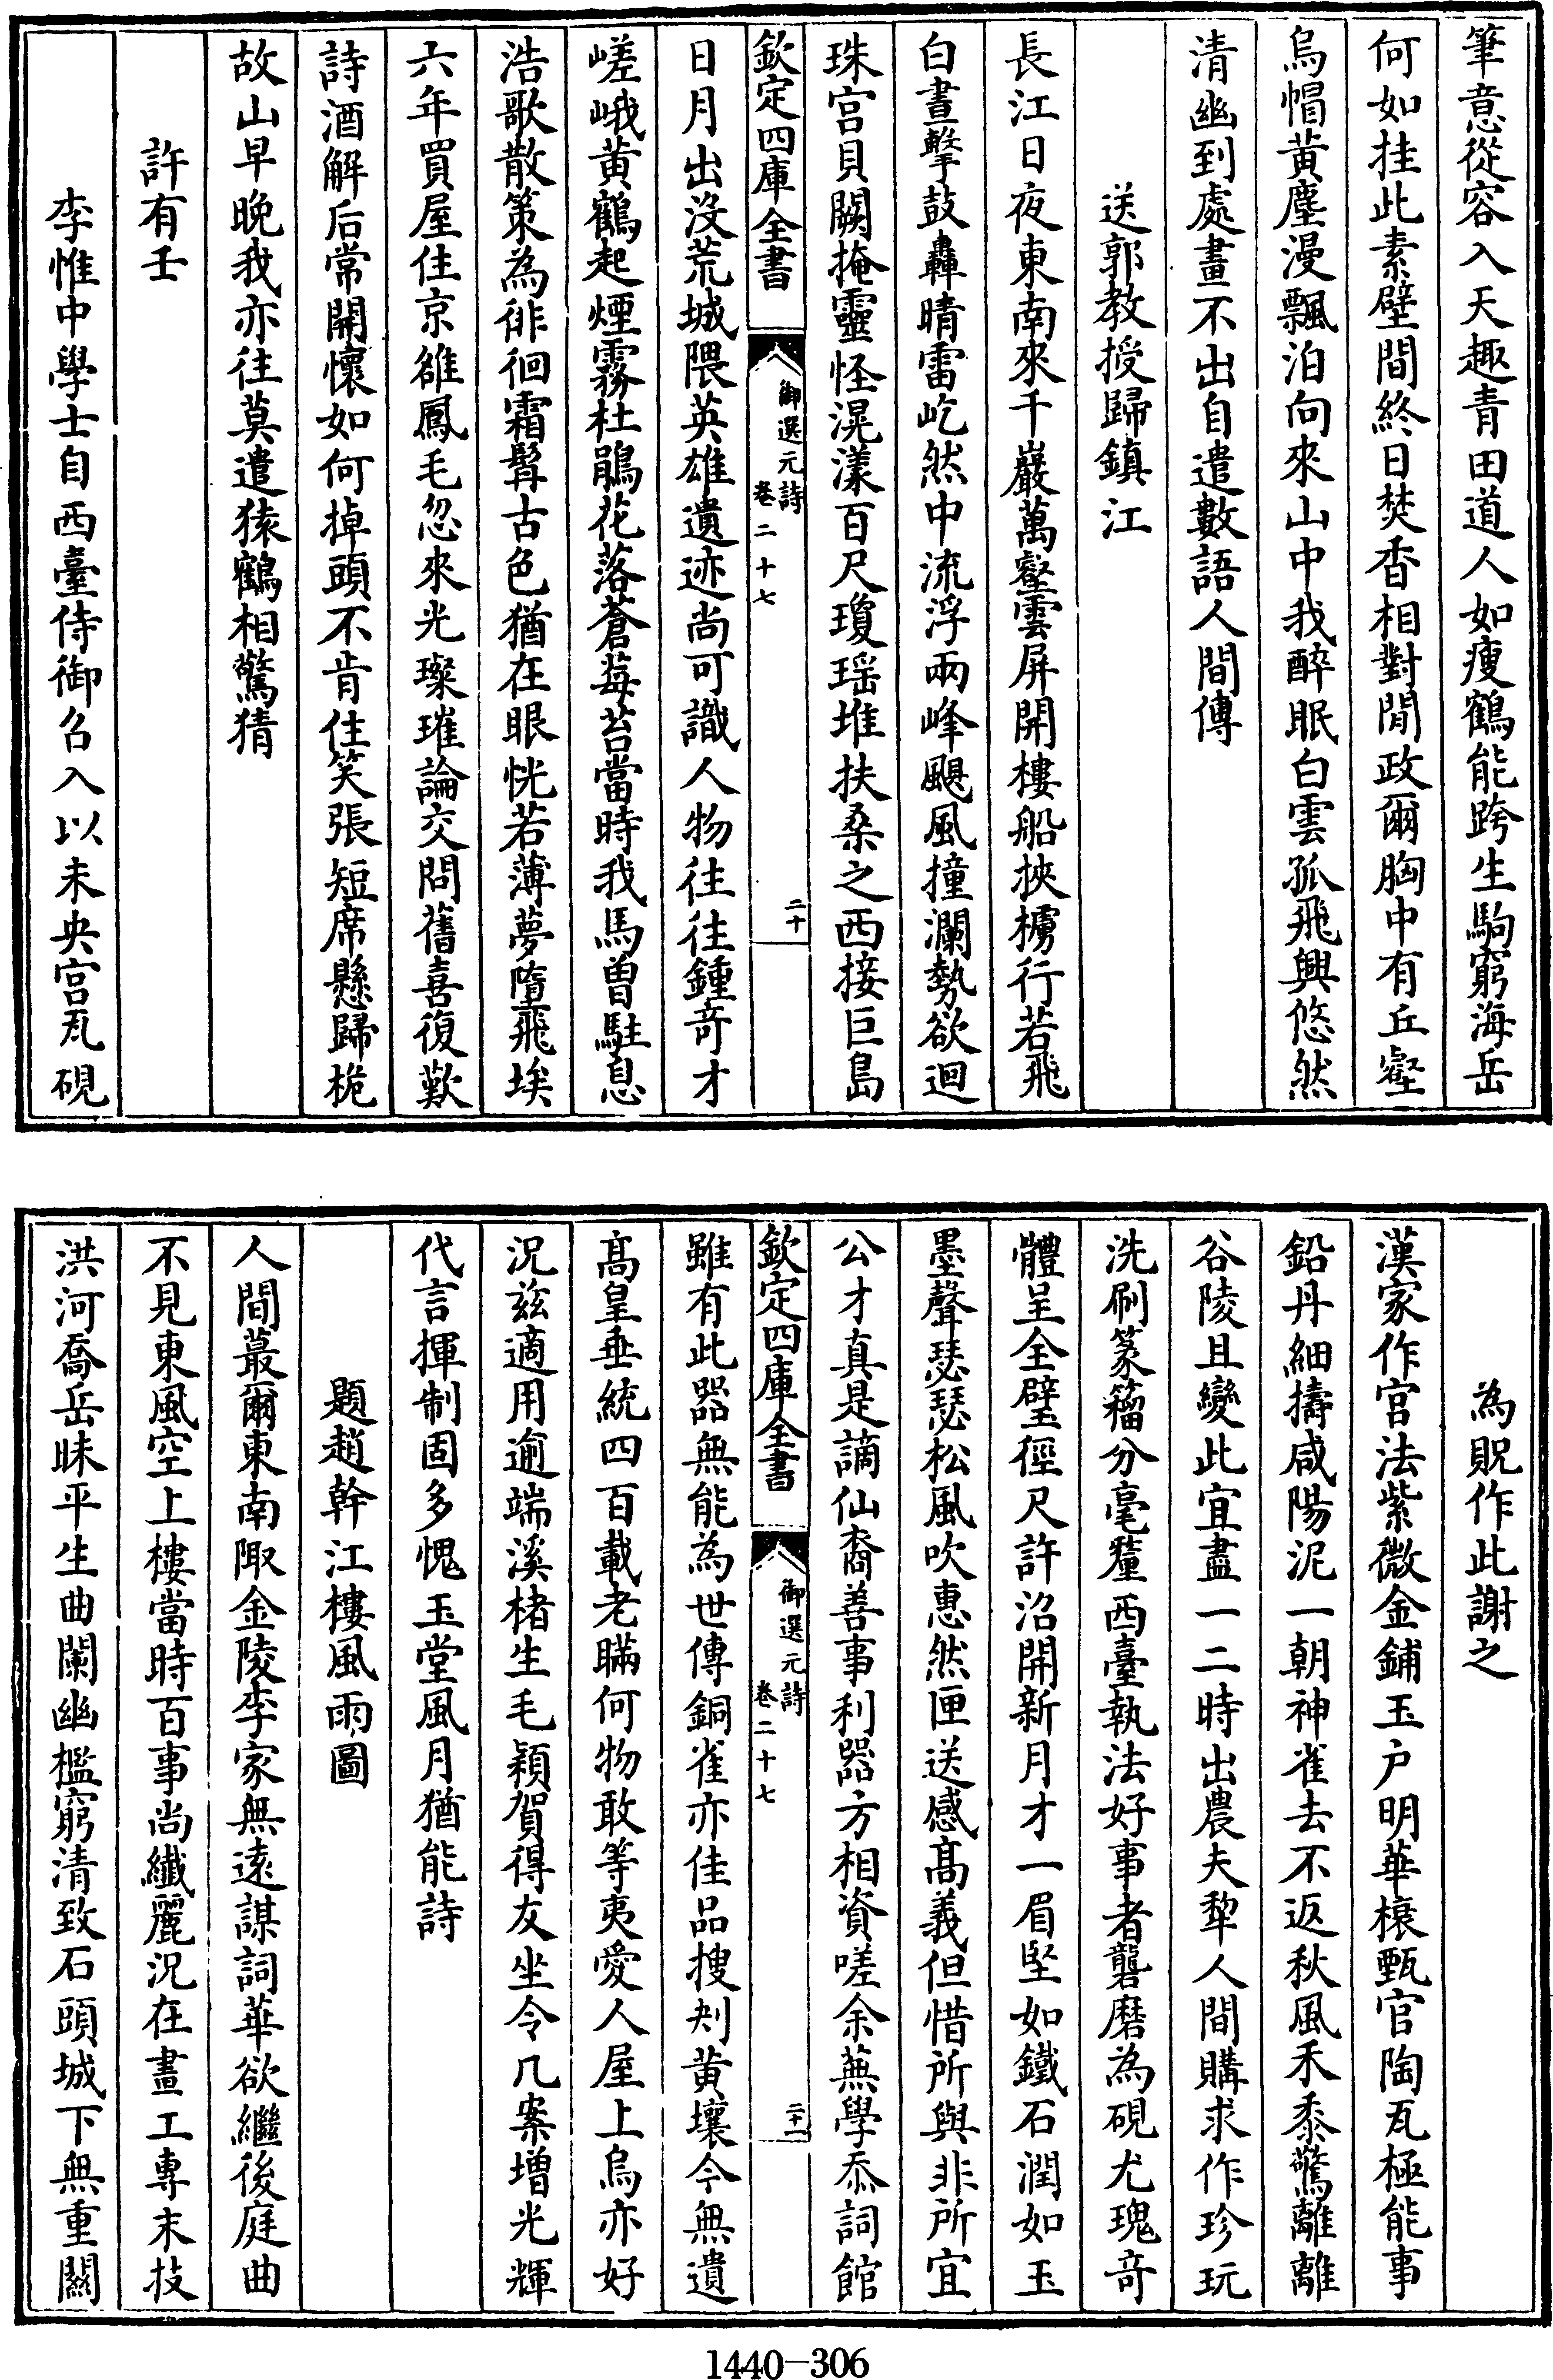 筆意從容入天趣青田道人如瘦鶴能跨生駒窮海岳
何如挂此素壁間終日焚香相對閒政爾胸中有丘壑
烏帽黃塵漫飄泊向來山中我醉眠白雲孤飛興悠然
清幽到處畫不出自遣數語人間傳
送郭教授歸鎮江
長江日夜東南來千巖萬壑雲屏開樓船挾櫓行若飛
白晝擊鼓轟晴雷屹然中流浮兩峰颶風撞瀾勢欲迴
珠宮貝闕掩靈怪滉漾百尺瓊瑶堆扶桑之西接巨島
欽定四庫全書
御選元詩
卷二十七
二十
日月出沒荒城隈英雄遺迹尚可識人物往往鍾奇才
嵯峨黃鶴起煙霧杜鵑花落蒼莓苔當時我馬曾駐息
浩歌散策為徘徊霜髯古色猶在眼恍若薄夢墮飛埃
六年買屋住京雒鳳毛忽來光璨璀論交問舊喜復歎
詩酒解后常開懷如何掉頭不肯住笑張短席懸歸桅
故山早晚我亦往莫遣猿鶴相驚猜
許有壬
李惟中學士自西臺侍御召入以未央宮瓦硯
為貺作此謝之
漢家作宮法紫微金鋪玉户明華榱甄官陶瓦極能事
鉛丹細擣咸陽泥一朝神雀去不返秋風禾黍驚離離
谷陵且變此宜盡一二時出農夫犂人間購求作珍玩
洗刷篆籀分毫釐西臺執法好事者礱磨為硯尤瑰奇
體呈全璧徑尺許沼開新月才一眉堅如鐵石潤如玉
墨聲瑟瑟松風吹惠然匣送感髙義但惜所與非所宜
公才真是謫仙裔善事利器方相資嗟余蕪學忝詞館
欽定四庫全書
御選元詩
卷二十七
二十一
雖有此器無能為世傳銅雀亦佳品搜刔黃壤今無遺
髙皇垂統四百載老瞞何物敢等夷愛人屋上烏亦好
況茲適用逾端溪楮生毛穎賀得友坐令几案增光輝
代言揮制固多愧玉堂風月猶能詩
題趙幹江樓風雨圖
人間蕞爾東南陬金陵李家無遠謀詞華欲繼後庭曲
不見東風空上樓當時百事尚纖麗況在畫工專末技
洪河喬岳昧平生曲闌幽檻窮清致石頭城下無重關
1440—306